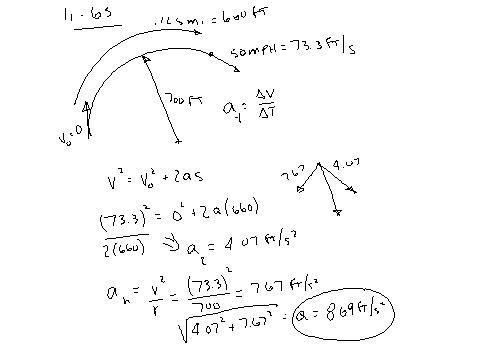 11.63
.125 mi = 660 FT
50 MPH = 73.3 FT/s
700 FT
V₀=0
a_t = ΔV/ΔT
7.67 4.07
V² = V₀² + 2as
(73.3)² = 0² + 2a(660)
2(660) ⇒ a_t = 4.07 FT/s²
a_n = V²/r = (73.3)²/700 = 7.67 FT/s²
√4.07² + 7.67² = a = 8.69 FT/s²